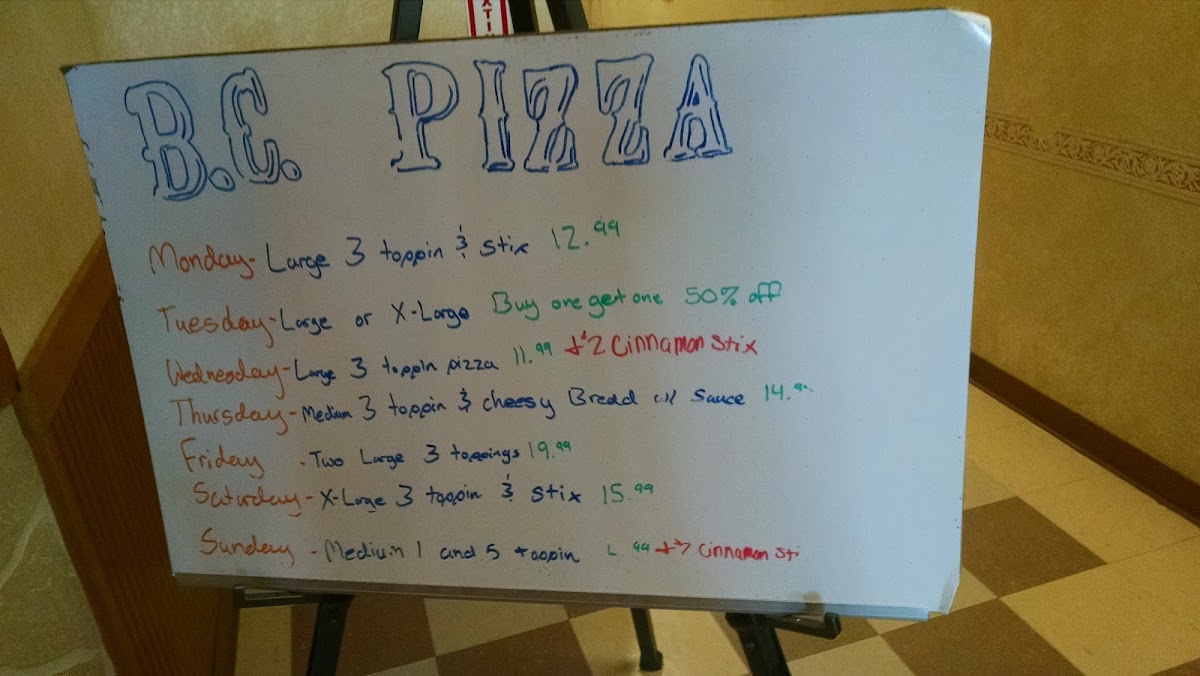 XTI
B.C. PIZZA
Monday - Large 3 toppin & Stix 12.99
Tuesday - Large or X-Large Buy one get one 50% off
Wednesday - Large 3 toppin pizza 11.99 +$2 Cinnamon Stix
Thursday - Medium 3 toppin & cheesy Bread w/ Sauce 14.99
Friday - Two Large 3 toppings 19.99
Saturday - X-Large 3 toppin & Stix 15.99
Sunday - Medium 1 and 5 toppin 99 Cinnamon Sti